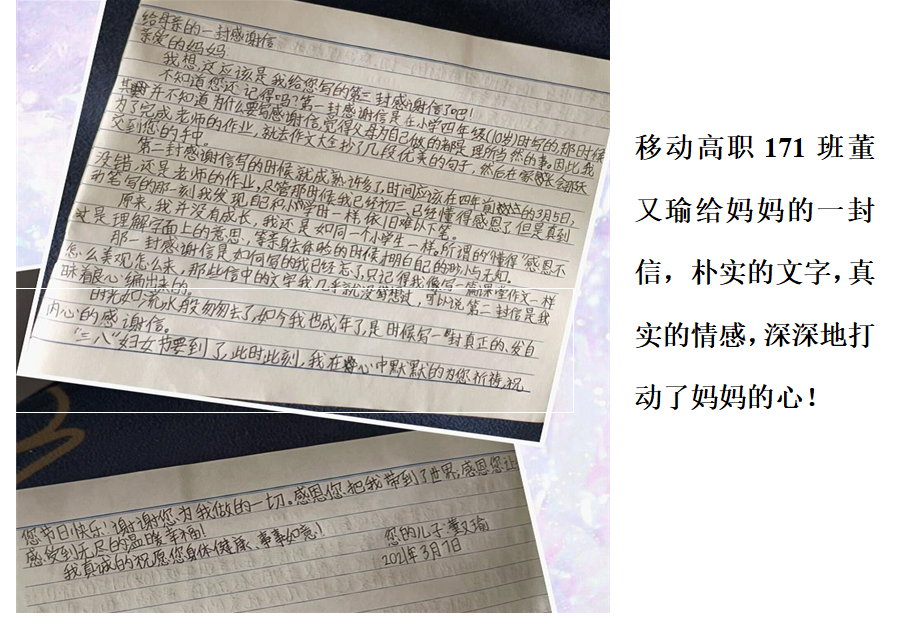 给母亲的一封感谢信
亲爱的妈妈
我想,还应该是我给您写的第三封感谢信了吧!
不知道您还记得吗?第一封感谢信是在小学四年级(10岁)时写的,那时候
并不知道为什么要写感谢信,觉得父母为自己做的都是理所当然的事。因此,我
为了完成老师的作业,就去作文大全抄了几段优美的句子,然后在家
交到您的手中。
第二封感谢信写的时候就成熟许多了,时间应该在四年前的3月5日,
没错,还是老师的作业,尽管那时候我已经初三,已经懂得感恩了,但是真到
动笔写的那一刻我发现自己和小学时一样,依旧难以下笔。
原来,我并没有成长,我还是如同一个小学生一样,所谓的“懂得”感恩不
过是理解字面上的意思,等亲身体验的时候才明白自己的渺小与无知。
那一封感谢信是如何写的我已经忘了,只记得我像写一篇课堂作文一样
怎么美观怎么来,那些信中的文字我几乎就没有想过,可以说第二封信是我
昧着良心编出来的。
时光如流水般匆匆去了,如今我也成年了,是时候写一封真正的、发自
内心的感谢信。
“三八”妇女节要到了,此时此刻,我在心中默默的为您祈祷,祝
您节日快乐!谢谢您为我做的一切。感恩您把我带到了世界,感恩您让
感受到无尽的温暖幸福!
我真诚的祝愿您身体健康、事事如意!
您的儿子:董又瑜
2021年3月7日
移动高职 171 班董
又瑜给妈妈的一封
信，朴实的文字，真
实的情感，深深地打
动了妈妈的心！